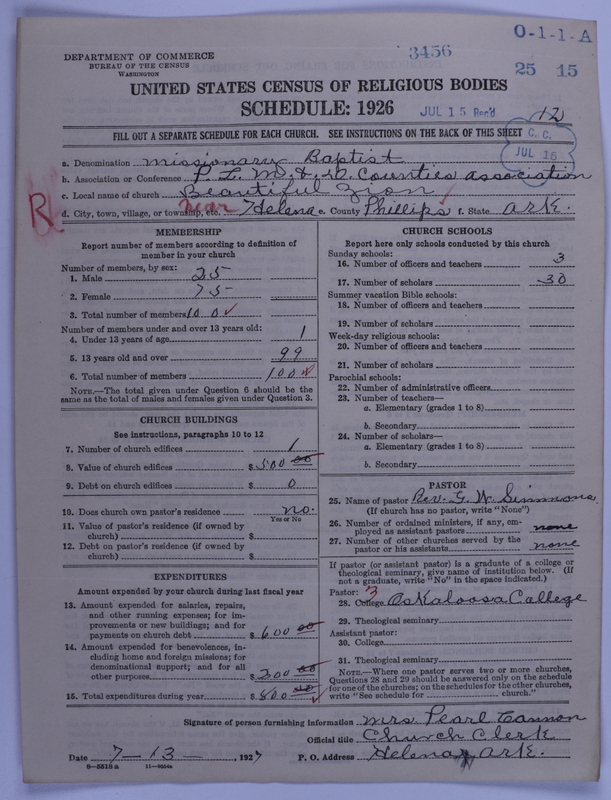 O-1-1-A
3456
25 15
DEPARTMENT OF COMMERCE
BUREAU OF THE CENSUS
WASHINGTON
UNITED STATES CENSUS OF RELIGIOUS BODIES
SCHEDULE: 1926
JUL 15 Rec'd
12
FILL OUT A SEPARATE SCHEDULE FOR EACH CHURCH. SEE INSTRUCTIONS ON THE BACK OF THIS SHEET
C. C.
JUL 16
a. Denomination Missionary Baptist
b. Association or Conference P. L. M. & D. Counties association
c. Local name of church Beautiful Zion
R
d. City, town, village, or township, etc. near Helena e. County Phillips f. State Ark.
MEMBERSHIP
Report number of members according to definition of
member in your church
Number of members, by sex:
1. Male 25
2. Female 75
3. Total number of members 100
Number of members under and over 13 years old:
4. Under 13 years of age 1
5. 13 years old and over 99
6. Total number of members 100
NOTE.—The total given under Question 6 should be the
same as the total of males and females given under Question 3.
CHURCH BUILDINGS
See instructions, paragraphs 10 to 12
7. Number of church edifices 1
8. Value of church edifices $ 500 00
9. Debt on church edifices $ 0
10. Does church own pastor's residence no.
Yes or No
11. Value of pastor's residence (if owned by
church) $
12. Debt on pastor's residence (if owned by
church) $
EXPENDITURES
Amount expended by your church during last fiscal year
13. Amount expended for salaries, repairs,
and other running expenses; for im-
provements or new buildings; and for
payments on church debt $ 600 00
14. Amount expended for benevolences, in-
cluding home and foreign missions; for
denominational support; and for all
other purposes $ 200 00
15. Total expenditures during year $ 800 00
CHURCH SCHOOLS
Report here only schools conducted by this church
Sunday schools:
16. Number of officers and teachers 3
17. Number of scholars 30
Summer vacation Bible schools:
18. Number of officers and teachers
19. Number of scholars
Week-day religious schools:
20. Number of officers and teachers
21. Number of scholars
Parochial schools:
22. Number of administrative officers
23. Number of teachers—
a. Elementary (grades 1 to 8)
b. Secondary
24. Number of scholars—
a. Elementary (grades 1 to 8)
b. Secondary
PASTOR
25. Name of pastor Rev. G. W. Simmons
(If church has no pastor, write "None")
26. Number of ordained ministers, if any, em-
ployed as assistant pastors none
27. Number of other churches served by the
pastor or his assistants none
If pastor (or assistant pastor) is a graduate of a college or
theological seminary, give name of institution below. (If
not a graduate, write "No" in the space indicated.)
Pastor: 3
28. College Oskaloosa College
29. Theological seminary
Assistant pastor:
30. College
31. Theological seminary
NOTE.—Where one pastor serves two or more churches,
Questions 28 and 29 should be answered only on the schedule
for one of the churches; on the schedules for the other churches,
write "See schedule for church."
Signature of person furnishing information Mrs Pearl Cannon
Official title Church Clerk
Date 7-13-, 1927 P. O. Address Helena, Ark.
8-5518a 11-9504a